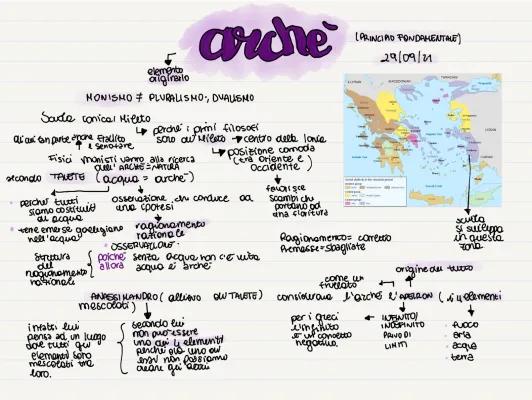 archè
(PRINCIPIO FONDAMENTALE)
29/09/21
elemento
originario
MONISMO ≠ PLURALISMO, DUALISMO
Scuola ionica Mileto
perché i primi filosofi
sono di Mileto → centro della Ionia
posizione comoda
(tra oriente e
occidente)
di cui fan parte anche Eraclito
e Senofane
Fisici monisti vanno alla ricerca
dell'ARCHÈ=NATURA
favorisce
scambi che
portano ad
una fioritura
secondo TALETE (acqua = archè)
perché tutti
siamo costituiti
di acqua
terre emerse galleggiano
nell'acqua
osservazione che conduce ad
una ipotesi
ragionamento
razionale
OSSERVAZIONE
struttura
del
ragionamento
razionale
poiché senza acqua non c'è vita
allora acqua è archè
Ragionamento= corretto
Premesse=sbagliate
scuola
si sviluppa
in questa
zona
come un
frullato
origine del tutto
ANASSIMANDRO (allievo di TALETE) considerava l'archè l'APEIRON (i 4 elementi
mescolati)
infatti lui
pensa ad un luogo
dove tutti gli
elementi sono
mescolati tra
loro.
secondo lui
non può essere
uno dei 4 elementi
perché già uno di
essi non possiamo
creare gli altri
per i greci
l'infinito
è un concetto
negativo.
INFINITO/
INDEFINITO
PRIVO DI
LIMITI
fuoco
aria
acqua
terra